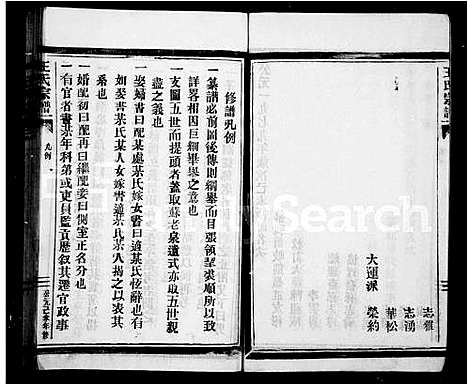 王氏宗譜
志雅
志湧
華松
榮約
大運派
修譜凡例
一纂譜必前圖後傳則綱舉而目張領挈裘順所以效
歐蘇相因巨細畢舉之爲也
一支圖五世而提頭者蓋取蘇老泉遺式亦取五世親
盡之義也
一娶婦書曰配某處某氏嫁女書曰適某氏恆辭也有
如娶書某氏某人女嫁書適某氏某人揭之以表其
系也
一婚配初曰配再曰繼配妾曰側室正名分也
一有官者書某年科第或吏員監立歷叙其遷官政事
王氏宗譜
凡例
一
FamilySearch